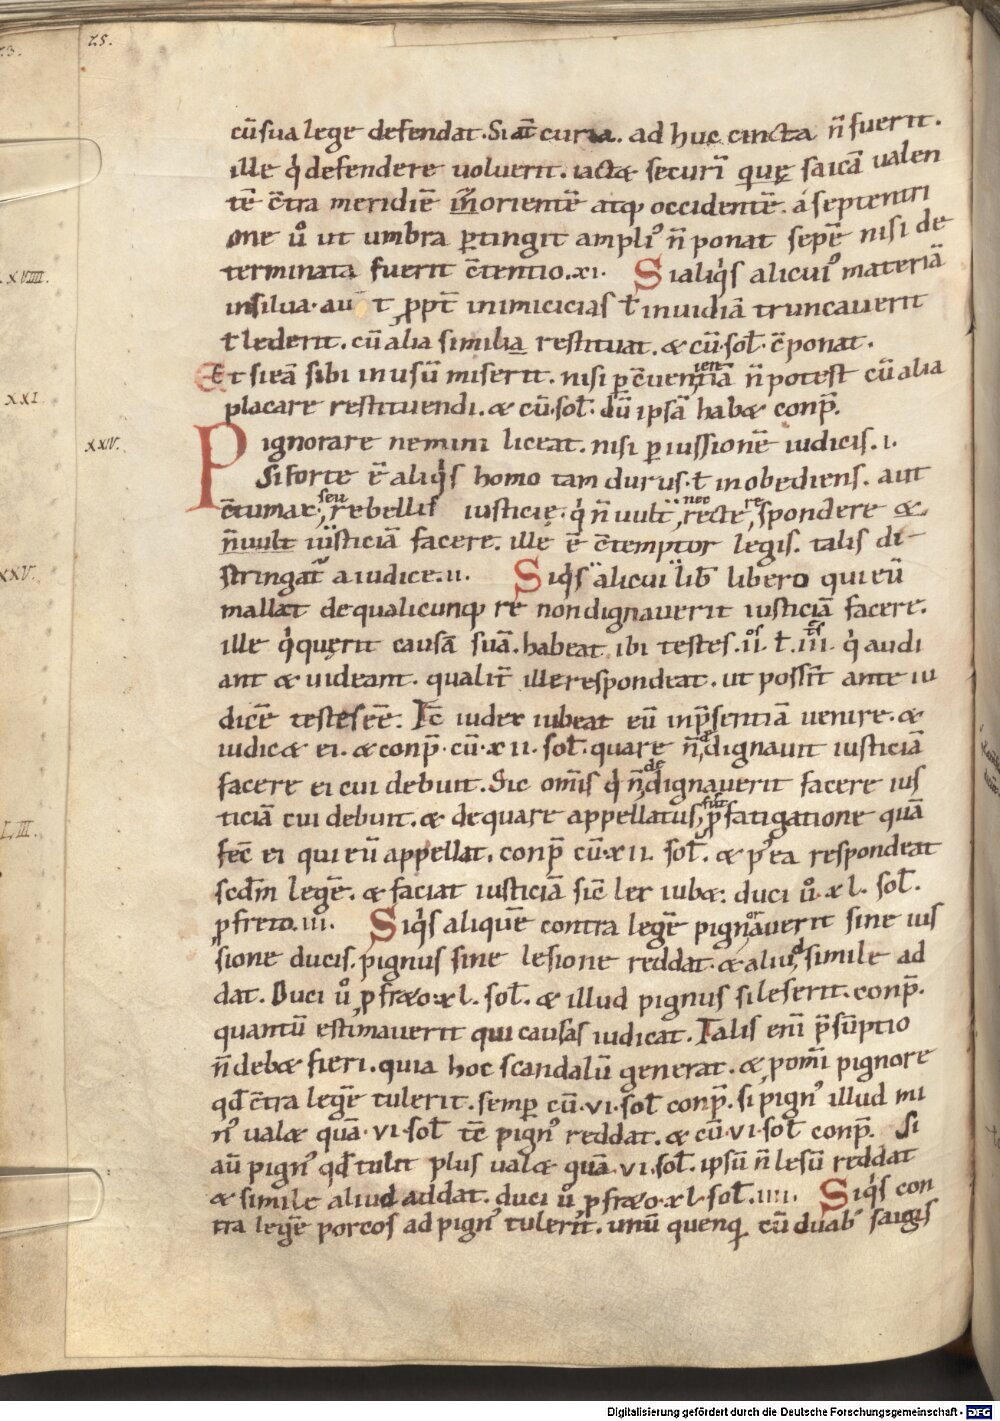 25.
cū sua lege defendat. Si aūt curia. ad huc cincta n̄ fuerit.
ille q̇ defendere uoluerit. iactæ securī quę saicā ualen
tē c̄tra meridiē īn orientē atq; occidentē. a septentri
one u̇o ut umbra ꝑtingit ampli᾽ n̄ ponat sepē nisi de
terminata fuerit c̄tentio. xi. Si aliq̇s alicui᾽ materiā
in silua. au t ꝓpt̄ inimicicias ƚ inuidiā truncauerit
ƚ lederit. cū alia similia restituat. æ cū. sol. c̄ponat.
Et si eā sibi in usū miserit. nisi ꝑ c̄uenientiā n̄ potest cū alia
placare restituendi. æ cū. sol. dū ipsā habæ conp̄.
XXIV.
Pignorare nemini liceat. nisi ꝑ iussionē iudicis. i.
Si forte ē aliq̇s homo tam durus. ƚ inobediens. aut
c̄tumax. seu rebellis iusticię. q̇ n̄ uult nec recte respondere æ
n̄ uult iusticiā facere. ille ē c̄temptor legis. talis di
stringat᾽ a iudice. ii. Siq̇s alicui lib̄ libero qui eū
mallat de qualicunq; re non dignauerit iusticiā facere.
ille q̇ quęrit causā suā. habeat ibi testes. ii.os ƚ. iii.es q̇ audi
ant æ uideant. qualit̄ ille respondeat. ut possīt ante iu
dicē testes eē. Tc̄ iudex iubeat eū in p̄sentiā uenire. æ
iudicæ ei. æ conp̄. cū. xii. sol. quare n̄ dignauit iusticiā
facere ei cui debuit. Sic om̄is q̇ n̄ dedignauerit facere ius
ticiā cui debuit. æ de quare appellatus fuit ꝓ fatigatione quā
fec̄ ei qui eū appellat. conp̄ cū. xii. sol. æ p᾽ ea respondeat
scdm̄ legē. æ faciat iusticiā sic̄ lex iubæ. duci u̇o. xl. sol.
ꝓ freto. iii. Siq̇s aliquē contra legē pignorauerit sine ius
sione ducis. pignus sine lesione reddat. æ aliud simile ad
dat. Duci u̇o ꝓ fræo. xl. sol. æ illud pignus si leserit. conp̄.
quantū estimauerit qui causas iudicat. Talis enī p̄sūptio
n̄ debæ fieri. quia hoc scandalū generat. æ ꝓ om̄i pignore
qd̄ c̄tra legē tulerit. semꝑ cū. vi. sol conp̄. si pign᾽ illud mi
n᾽ ualæ quā. vi. sol tc̄ pign᾽ reddat. æ cū. vi. sol conp̄. Si
aū pign᾽ qd̄ tulit plus ualæ quā. vi. sol. ipsū n̄ lesū reddat
æ simile aliud addat. duci u̇o ꝓ fræo. xl. sol. iiii. Siq̇s con
tra legē porcos ad pign᾽ tulerit. unū quenq; cū duab᾽ saigis
Digitalisierung gefördert durch die Deutsche Forschungsgemeinschaft - DFG